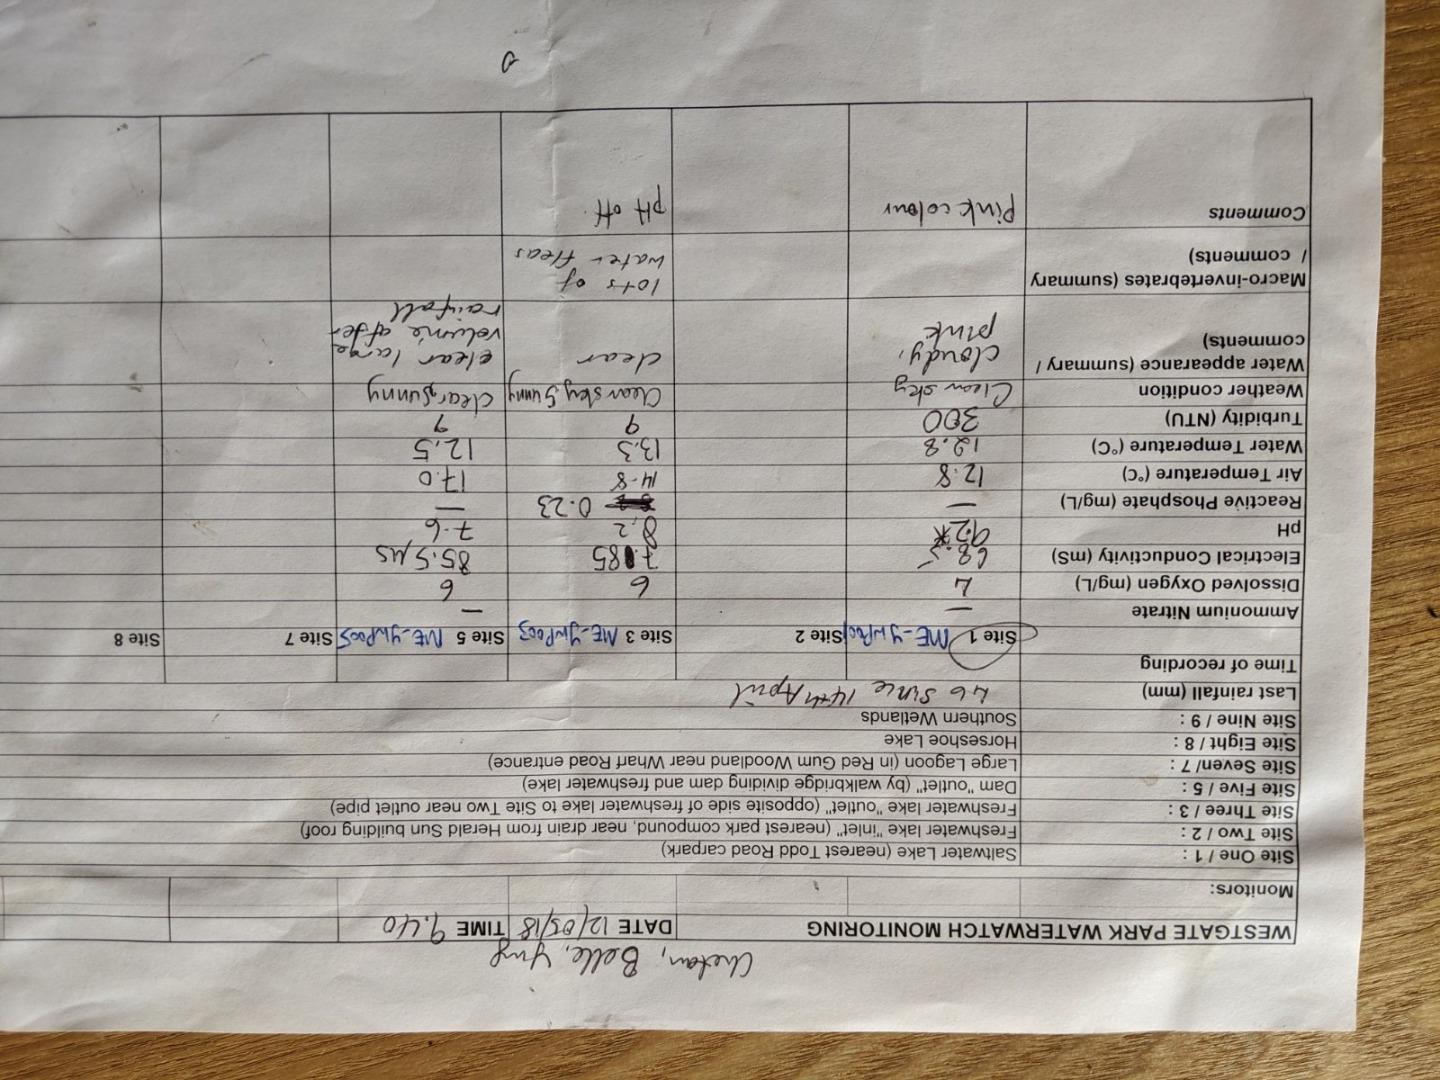 Chetan, Belle, Ying
WESTGATE PARK WATERWATCH MONITORING DATE 12/05/18 TIME 9.40
Monitors:
Site One / 1 : Saltwater Lake (nearest Todd Road carpark)
Site Two / 2 : Freshwater lake "inlet" (nearest park compound, near drain from Herald Sun building roof)
Site Three / 3 : Freshwater lake "outlet" (opposite side of freshwater lake to Site Two near outlet pipe)
Site Five / 5 : Dam "outlet" (by walkbridge dividing dam and freshwater lake)
Site Seven/ 7 : Large Lagoon (in Red Gum Woodland near Wharf Road entrance)
Site Eight / 8 : Horseshoe Lake
Site Nine / 9 : Southern Wetlands
Last rainfall (mm) 46 since 14th April
Time of recording
Site 1 ME-YWP001 Site 2 Site 3 ME-YWP003 Site 5 ME-YWP005 Site 7 Site 8
Ammonium Nitrate — —
Dissolved Oxygen (mg/L) 4 6 6
Electrical Conductivity (mS) 68.5 7.85 85.5 µs
pH 9.2* 8.2 7.6
Reactive Phosphate (mg/L) — 0.23 —
Air Temperature (°C) 12.8 14.8 17.0
Water Temperature (°C) 12.8 13.3 12.5
Turbidity (NTU) 300 9 9
Weather condition Clear sky Clear sky Sunny clear, sunny
Water appearance (summary / comments) cloudy, pink clear clear large volume after rainfall
Macro-invertebrates (summary / comments) lots of water fleas
Comments Pink colour pH off